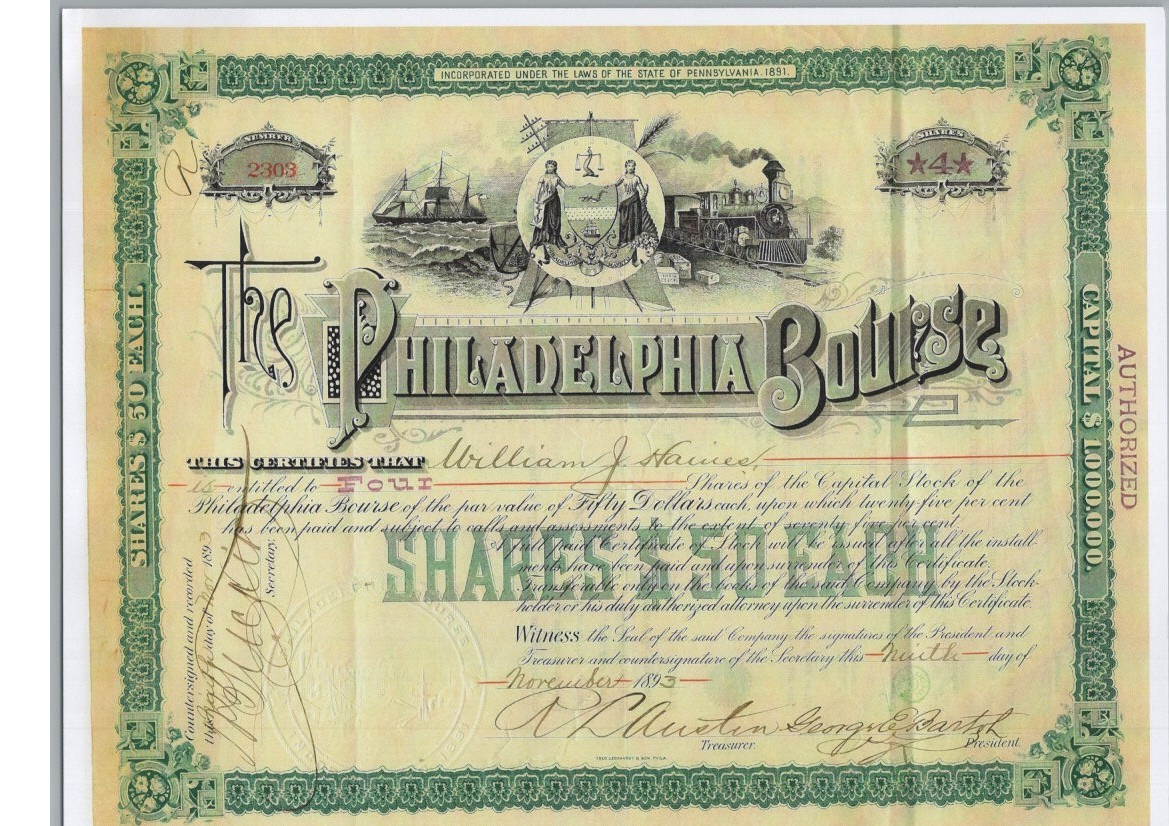 INCORPORATED UNDER THE LAWS OF THE STATE OF PENNSYLVANIA. 1891.
NUMBER
2303
SHARES
★4★
R
The Philadelphia Bourse
SHARES $ 50 EACH.
CAPITAL $ 1.000.000.
AUTHORIZED
THIS CERTIFIES THAT William J. Haines,
is entitled to Four Shares of the Capital Stock of the
Philadelphia Bourse of the par value of Fifty Dollars each, upon which twenty-five per cent
has been paid and subject to calls and assessments to the extent of seventy five per cent.
SHARES $ 50 EACH
A full paid Certificate of Stock will be issued after all the install-
ments have been paid and upon surrender of this Certificate.
Transferable only on the books of the said Company by the Stock-
holder or his duly authorized attorney upon the surrender of this Certificate.
Witness the Seal of the said Company the signatures of the President and
Treasurer and countersignature of the Secretary this Ninth day of
November 1893
Countersigned and recorded
this day of Nov 1893
Secretary.
R L Austin
Treasurer.
George E. Bartol
President.
THEO LEONHARDT & SON. PHILA.